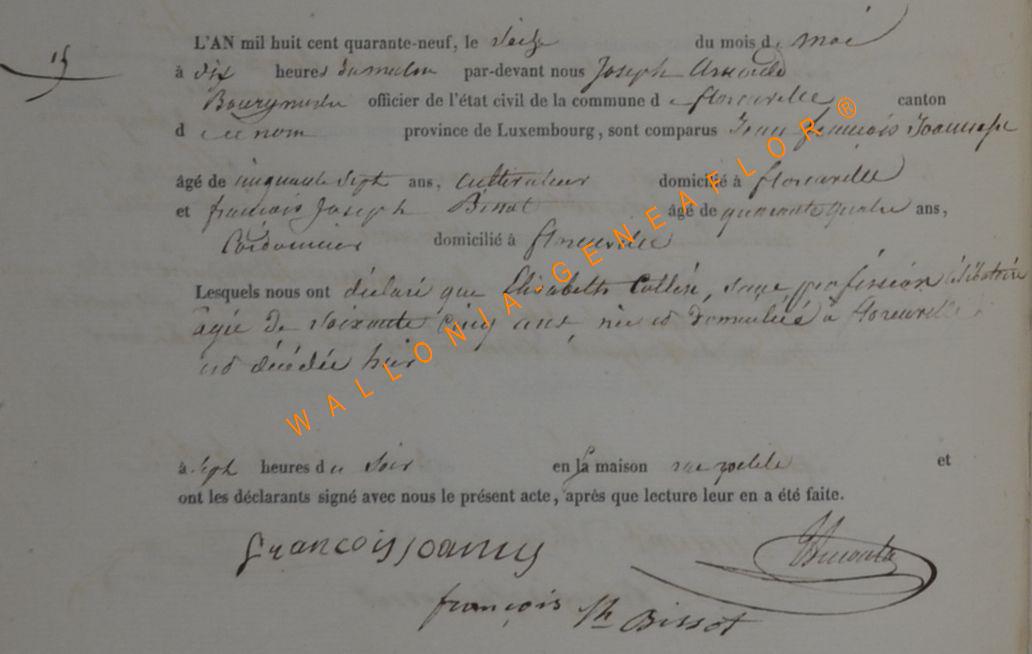 15
L'AN mil huit cent quarante-neuf, le seize du mois de mai
à dix heures du matin par-devant nous Joseph Arnould
Bourgmestre officier de l'état civil de la commune de florenville canton
de ce nom province de Luxembourg, sont comparus Jean françois
âgé de cinquante sept ans, cultivateur domicilié à florenville
et francois Joseph Bissot âgé de quarante quatre ans,
Cordonnier domicilié à florenville
Lesquels nous ont déclaré que Elisabeth Collin, sans profession célibataire
âgée de soixante cinq ans née et domiciliée à florenville
est décédée hier
à sept heures du soir en sa maison rue et
ont les déclarants signé avec nous le présent acte, après que lecture leur en a été faite.
françois joannes
françois Jh Bissot
WALLONIA-GENEAFLOR®